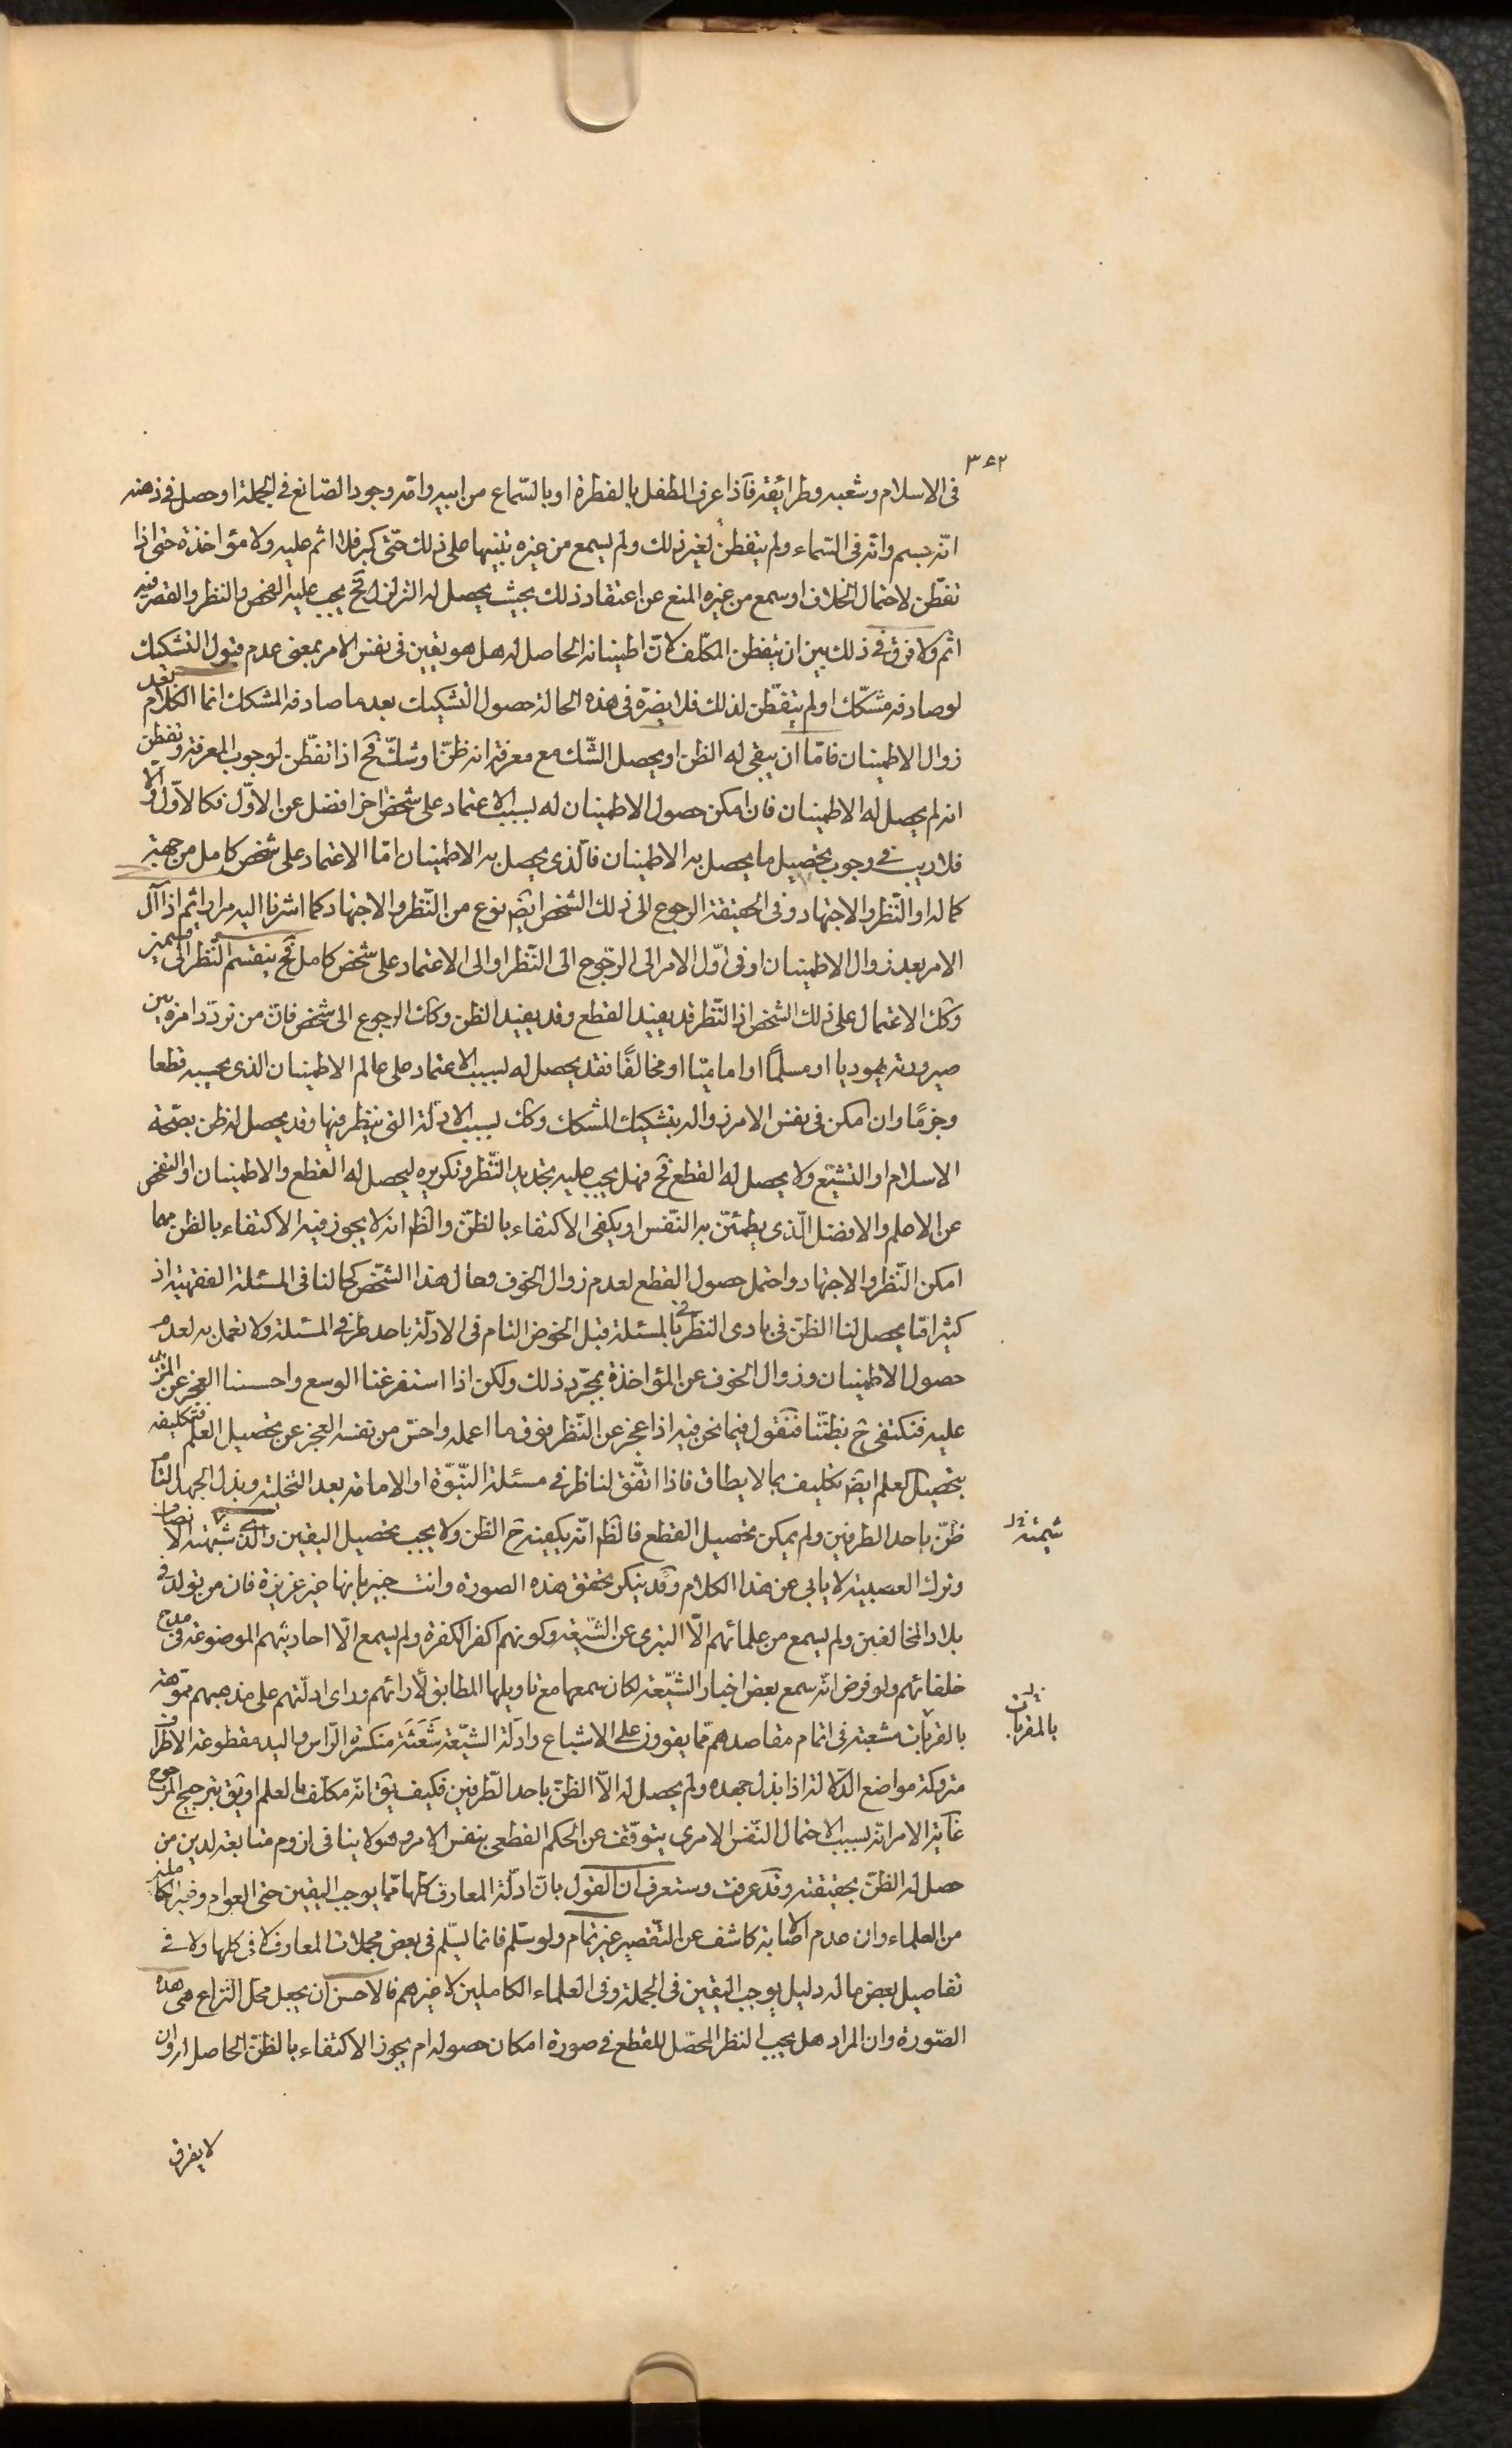 ٣٤٢
فى الاسلام وشعبه وطرائقه فاذا عرف الطفل بالفطرة او بالسّماع من ابيه وامّه وجود الصّانع فى الجملة او حصل فى ذهنه
انّه جسم وانّه فى السّماء ولم يتفطّن لغير ذلك ولم يسمع من غيره تنبيها على ذلك حتّى كبر فلا اثم عليه ولا مؤاخذة حتى اذا
تفطّن لاحتمال الخلاف او سمع من غيره المنع عن اعتقاد ذلك بحيث يحصل له التزلزل فح يجب عليه الفحص والنظر والمقصر فيه
اثم ولا فرق فى ذلك بين ان يتفطن المكلّف لانّ اطمينانه الحاصل له هل هو يقين فى نفس الامر بمعنى عدم قبول التشكيك
لو صادفه مشكّك او لم يتفطّن لذلك فلا يضرّه فى هذه الحالة حصول التشكيك بعد ما صادفه المشكك انما الكلام بعد
زوال الاطمينان فامّا ان يبقى له الظن او يحصل الشّك مع معرفته انه ظنّ او شكّ فح اذا تفطّن لوجوب المعرفة وتفطن
انه لم يحصل له الاطمينان فان امكن حصول الاطمينان له بسبب الاعتماد على شخص اخر افضل عن الاوّل فكالاوّل والّا
فلا ريب فى وجوب تحصيل ما يحصل به الاطمينان فالّذى يحصل به الاطمينان امّا الاعتماد على شخص كامل من جهة
كماله او النّظر والاجتهاد وفى الحقيقة الرجوع الى ذلك الشخص ايض نوع من النّظر والاجتهاد كما اشرنا اليه مرارا ثم اذا آل
الامر بعد زوال الاطمينان او فى اوّل الامر الى الرّجوع الى النّظر او الى الاعتماد على شخص كامل فح ينقسم النّظر الى قسمين
وكك الاعتمال على ذلك الشخص اذ النّظر قد يفيد القطع وقد يفيد الظن وكك الرجوع الى شخص فانّ من تردّد امره بين
صيرورته يهوديا او مسلماً او اماميّا او مخالفًا فقد يحصل له بسبب الاعتماد على عالم الاطمينان الذى يحسبه قطعا
وجزمًا وان امكن فى نفس الامر زواله بتشكيك المشكك وكك بسبب الادلّة التى ينظر فيها وقد يحصل له ظن بصحّة
الاسلام او التشيّع ولا يحصل له القطع فح فهل يجب عليه تجديد النّظر وتكريره ليحصل له القطع والاطمينان او التفحص
عن الاعلم والافضل الّذى يطمئنّ به النّفس او يكفى الاكتفاء بالظنّ والظّم انه لا يجوز فيه الاكتفاء بالظن مهما
امكن النّظر والاجتهاد واحتمل حصول القطع لعدم زوال الخوف وحال هذا الشّخص كحالنا فى المسئلة الفقهيّة اذ
كثيرا مّا يحصل لنا الظنّ فى بادى النظر فى بالمسئلة قبل الخوض التام فى الادلّة باحد طرفى المسئلة ولا نعمل به لعدم
حصول الاطمينان وزوال الخوف عن المؤاخذة بمجرّد ذلك ولكن اذا استفرغنا الوسع واحسسنا العجز عن المزيد
عليه فنكتفى ح بظنّنا فنقول فيما نحن فيه اذا عجز عن النّظر فوق ما اعمله واحسّ من نفسه العجز عن تحصيل العلم فتكليفه
بتحصيل العلم ايض تكليف بما لا يطاق فاذا اتّفق لناظر فى مسئلة النّبوّة او الامامة بعد التخلية وبذل الجهد التام
ظنّ باحد الطرفين ولم يمكن تحصيل القطع فالظّم انّه يكفيه ح الظن ولا يجب تحصيل اليقين والّذى شيمته الانصاف
وترك العصبية لا يابى عن هذا الكلام وقد ينكر تحقق هذه الصورة وانت خبير بانها غير عزيزة فان من تولد فى
بلاد المخالفين ولم يسمع من علمائهم الّا التبرى عن الشّيعة وكونهم اكفر الكفرة ولم يسمع الّا احاديثهم الموضوعة فى مدح
خلفائهم ولو فرض انّه سمع بعض اخبار الشّيعة لكان سمعها مع تاويلها المطابق لأرائهم وراى ادلّتهم على مذهبهم مموّهة
بالمقربات مشعبة فى اتمام مقاصدهم ممّا يقوون على الاشباع وادلّة الشيّعة شَعَثَة منكسرة الرّاس واليد مقطوعة الاطراف
متروكة مواضع الدّلالة اذا بذل جهده ولم يحصل له الّا الظنّ باحد الطّرفين فكيف يق انّه مكلّف بالعلم او يق بترجيح المرجوح
غاية الامر انّه بسبب الاحتمال النّفس الامرى يتوقّف عن الحكم القطعى بنفس الامر وهو لا ينافى لزوم متابعة لدين من
حصل له الظنّ بحقيقته وقد عرفت وستعرف ان القول بانّ ادلّة المعارف كلّها ممّا يوجب اليقين حتى العوام وغير الكاملين
من العلماء وان عدم الاصابة كاشف عن التّقصير غير تمام ولو سلّم فانما يسلّم فى بعض مجملات المعارف لا فى كلها ولا فى
تفاصيل بعض ما له دليل يوجب اليقين فى الجملة وفى العلماء الكاملين لا غيرهم فالاحسن ان يجعل محل النزاع هى هذه
الصّورة وان المراد هل يجب النظر المحصّل للقطع فى صورة امكان حصوله ام يجوز الاكتفاء بالظنّ الحاصل
شيمته
بالمقربات
لا يفرق